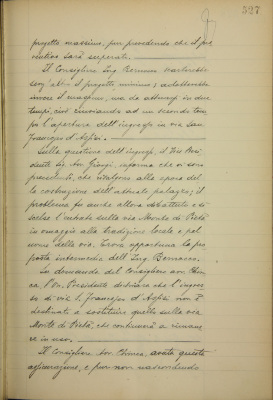 327
progetto massimo, pur prevedendo che il pre
ventivo sarà superato.
Il Consigliere Ing. Bernocco scarterebbe
senz'altro il progetto minimo; adotterebbe
invece il massimo, ma da attuarsi in due
tempi, cioè rinviando ad un secondo tem
po l'apertura dell'ingresso in via San
Francesco d'Assisi.
Sulla questione dell'ingresso, il Presi
dente informa che vi sono
precedenti, che risalgono alla epoca del
la costruzione dell'attuale palazzo; il
problema fu anche allora dibattuto e si
scelse l'entrata sulla via Monte di Pietà
in omaggio alla tradizione locale e pel
nome della via. Trova opportuna la pro
posta intermedia dell'Ing. Bernocco.
Su domanda del Consigliere avv. Chiu
ca l'On. Presidente dichiara che l'ingres
so di via S. Francesco d'Assisi non è
destinato a sostituire quello sulla via
Monte di Pietà, che continuerà a rimane
re in uso.
Il Consigliere avuta questa
assicurazione, e pur non nascondendo